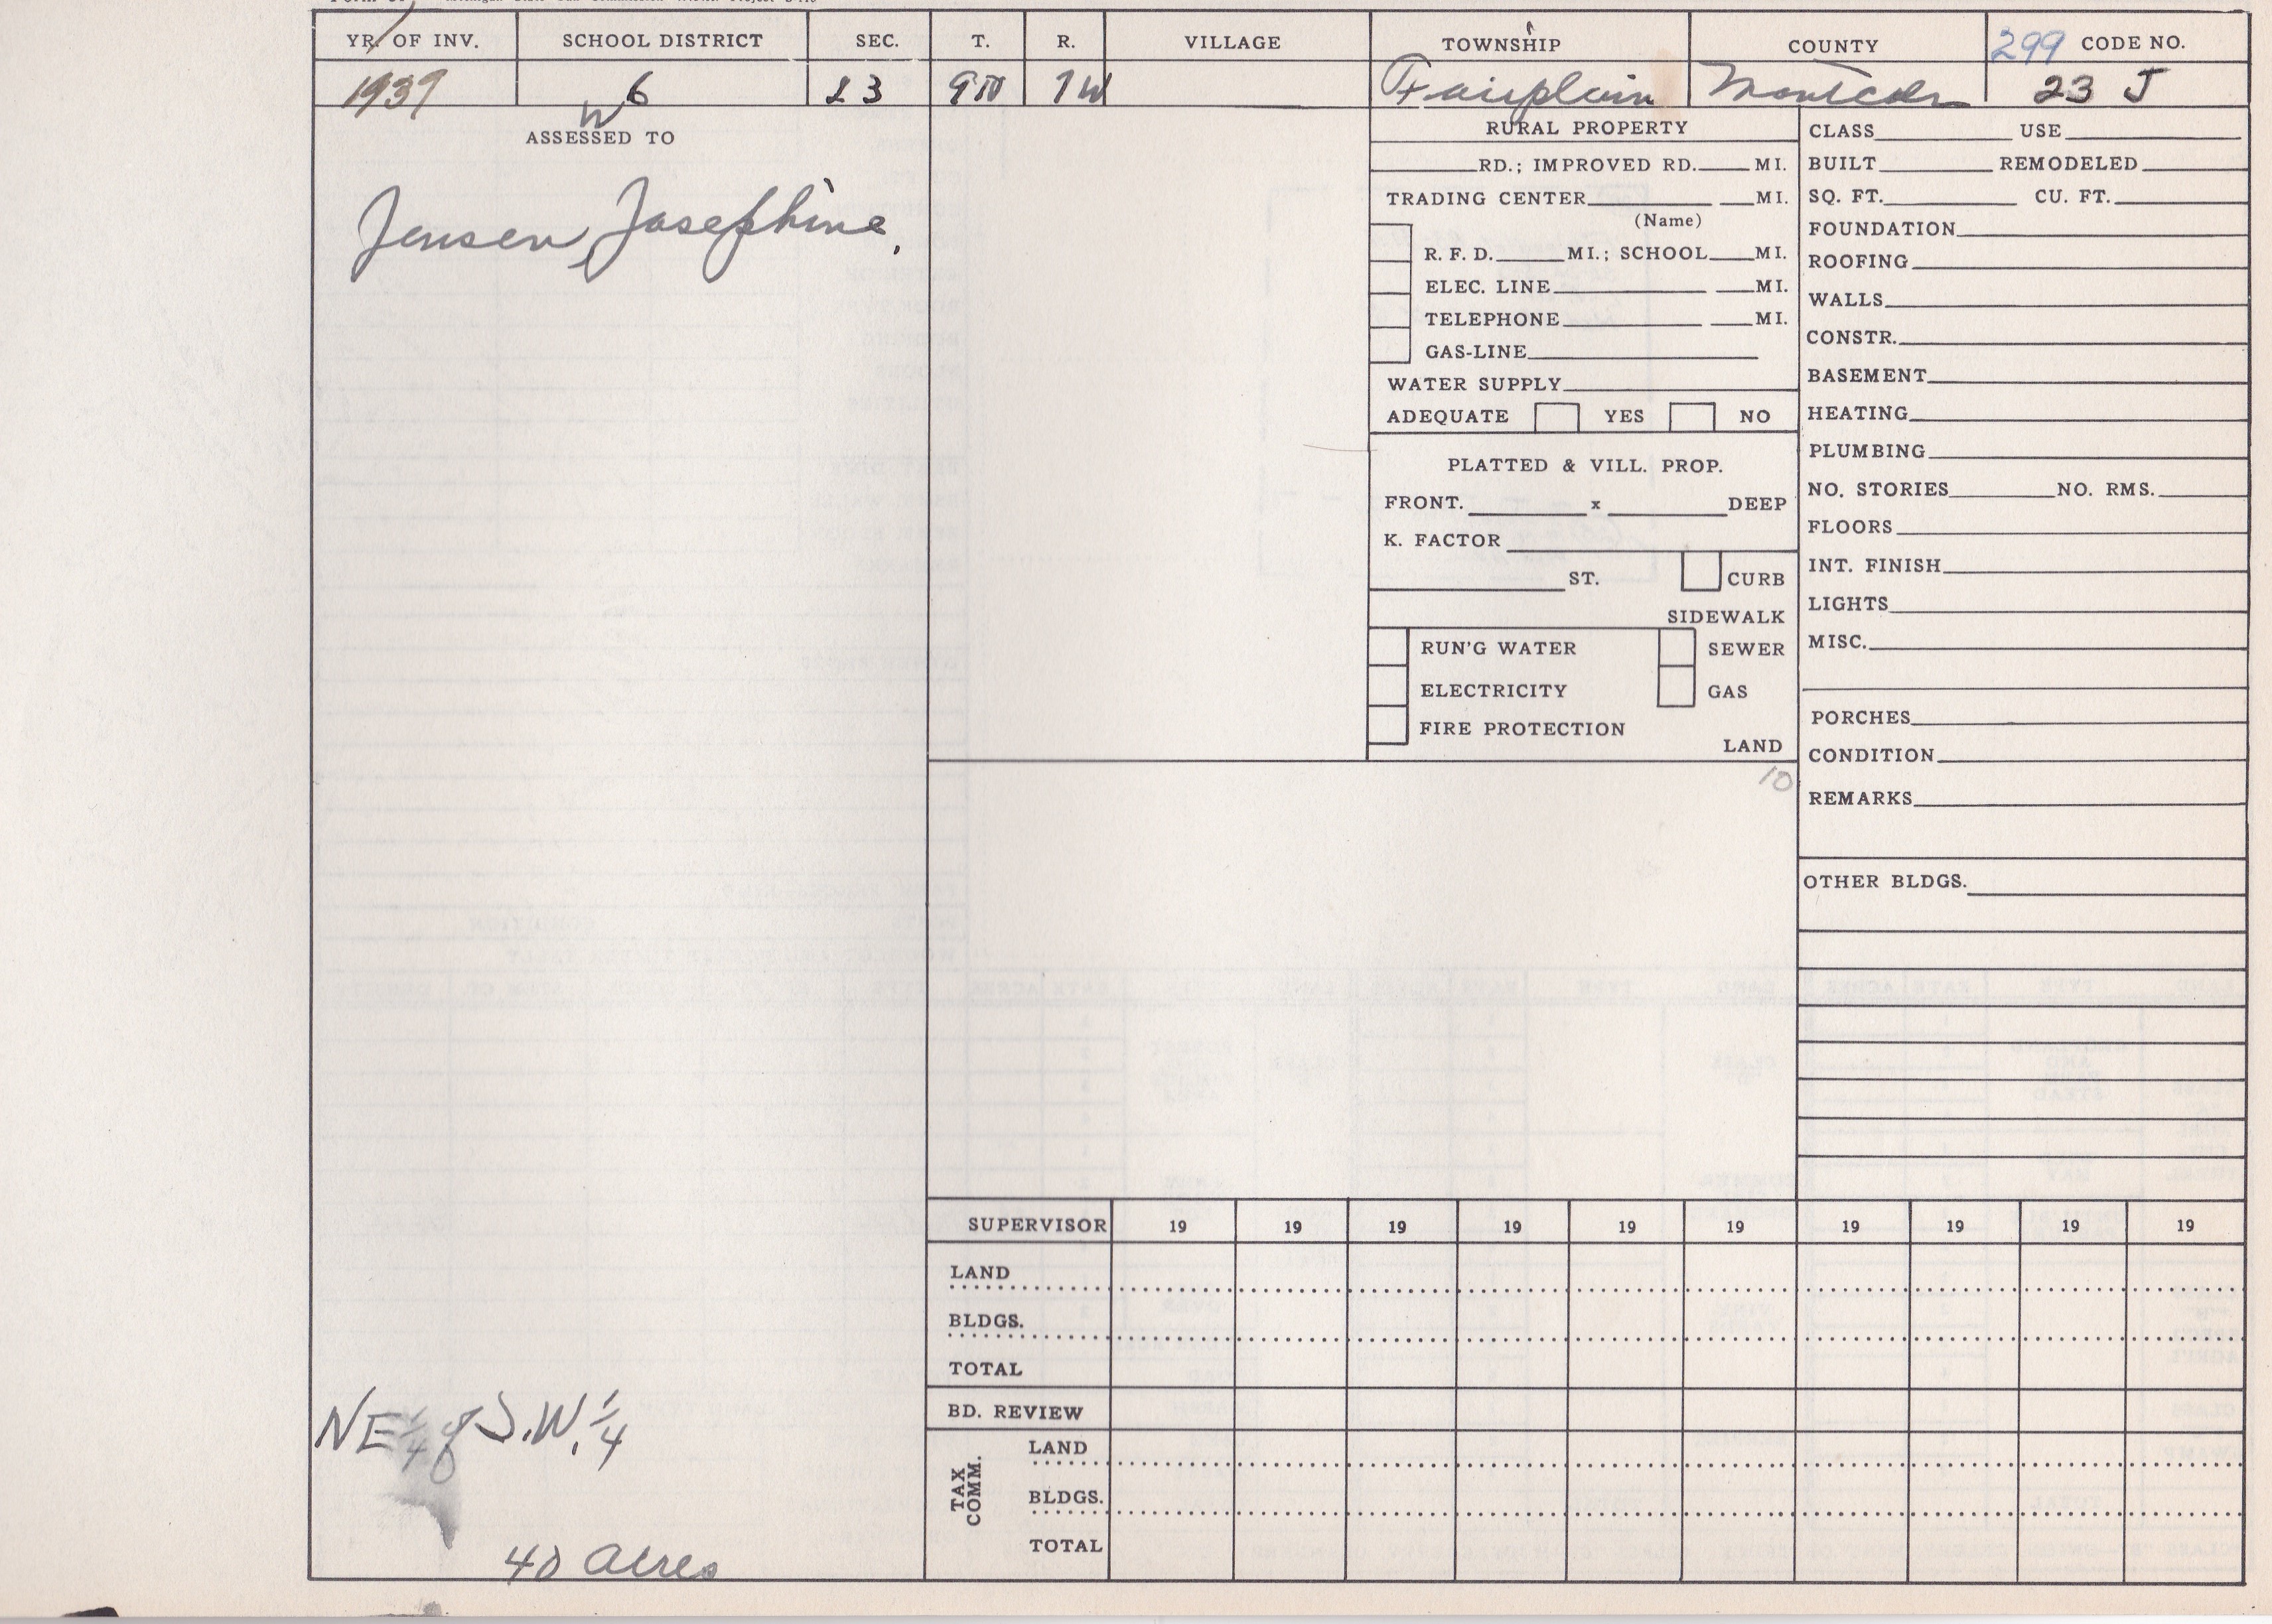 YR. OF INV. SCHOOL DISTRICT SEC. T. R. VILLAGE TOWNSHIP COUNTY 299 CODE NO.
1939 6 23 9N 7W Fairplain Montcalm 23 J
W
ASSESSED TO
Jensen, Josephine,
NE 1/4 of S.W. 1/4
40 acres
RURAL PROPERTY
RD.; IMPROVED RD. MI.
TRADING CENTER MI.
(Name)
R. F. D. MI.; SCHOOL MI.
ELEC. LINE MI.
TELEPHONE MI.
GAS-LINE
WATER SUPPLY
ADEQUATE YES NO
PLATTED & VILL. PROP.
FRONT. x DEEP
K. FACTOR
ST. CURB
SIDEWALK
RUN'G WATER SEWER
ELECTRICITY GAS
FIRE PROTECTION
LAND
10
CLASS USE
BUILT REMODELED
SQ. FT. CU. FT.
FOUNDATION
ROOFING
WALLS
CONSTR.
BASEMENT
HEATING
PLUMBING
NO. STORIES NO. RMS.
FLOORS
INT. FINISH
LIGHTS
MISC.
PORCHES
CONDITION
REMARKS
OTHER BLDGS.
SUPERVISOR 19 19 19 19 19 19 19 19 19 19
LAND
BLDGS.
TOTAL
BD. REVIEW
TAX COMM.
LAND
BLDGS.
TOTAL